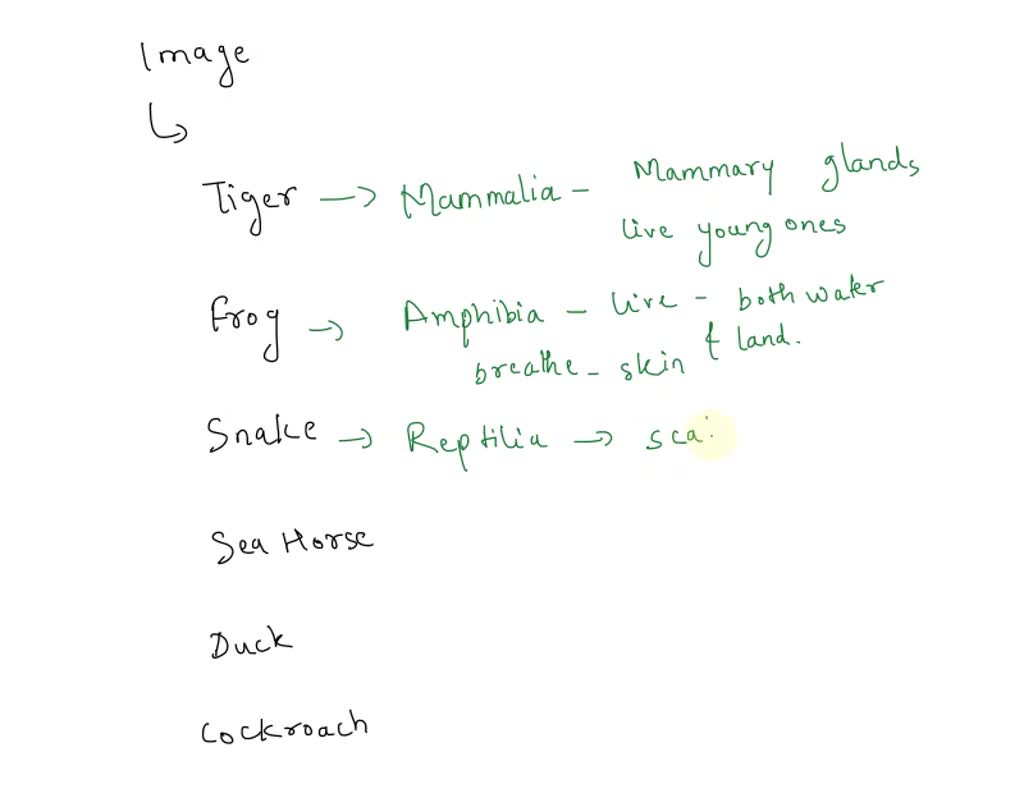 Image
Tiger → Mammalia - Mammary glands
live young ones
Frog → Amphibia - live - both water
breathe - skin & land.
Snake → Reptilia → sca
Sea Horse
Duck
Cockroach